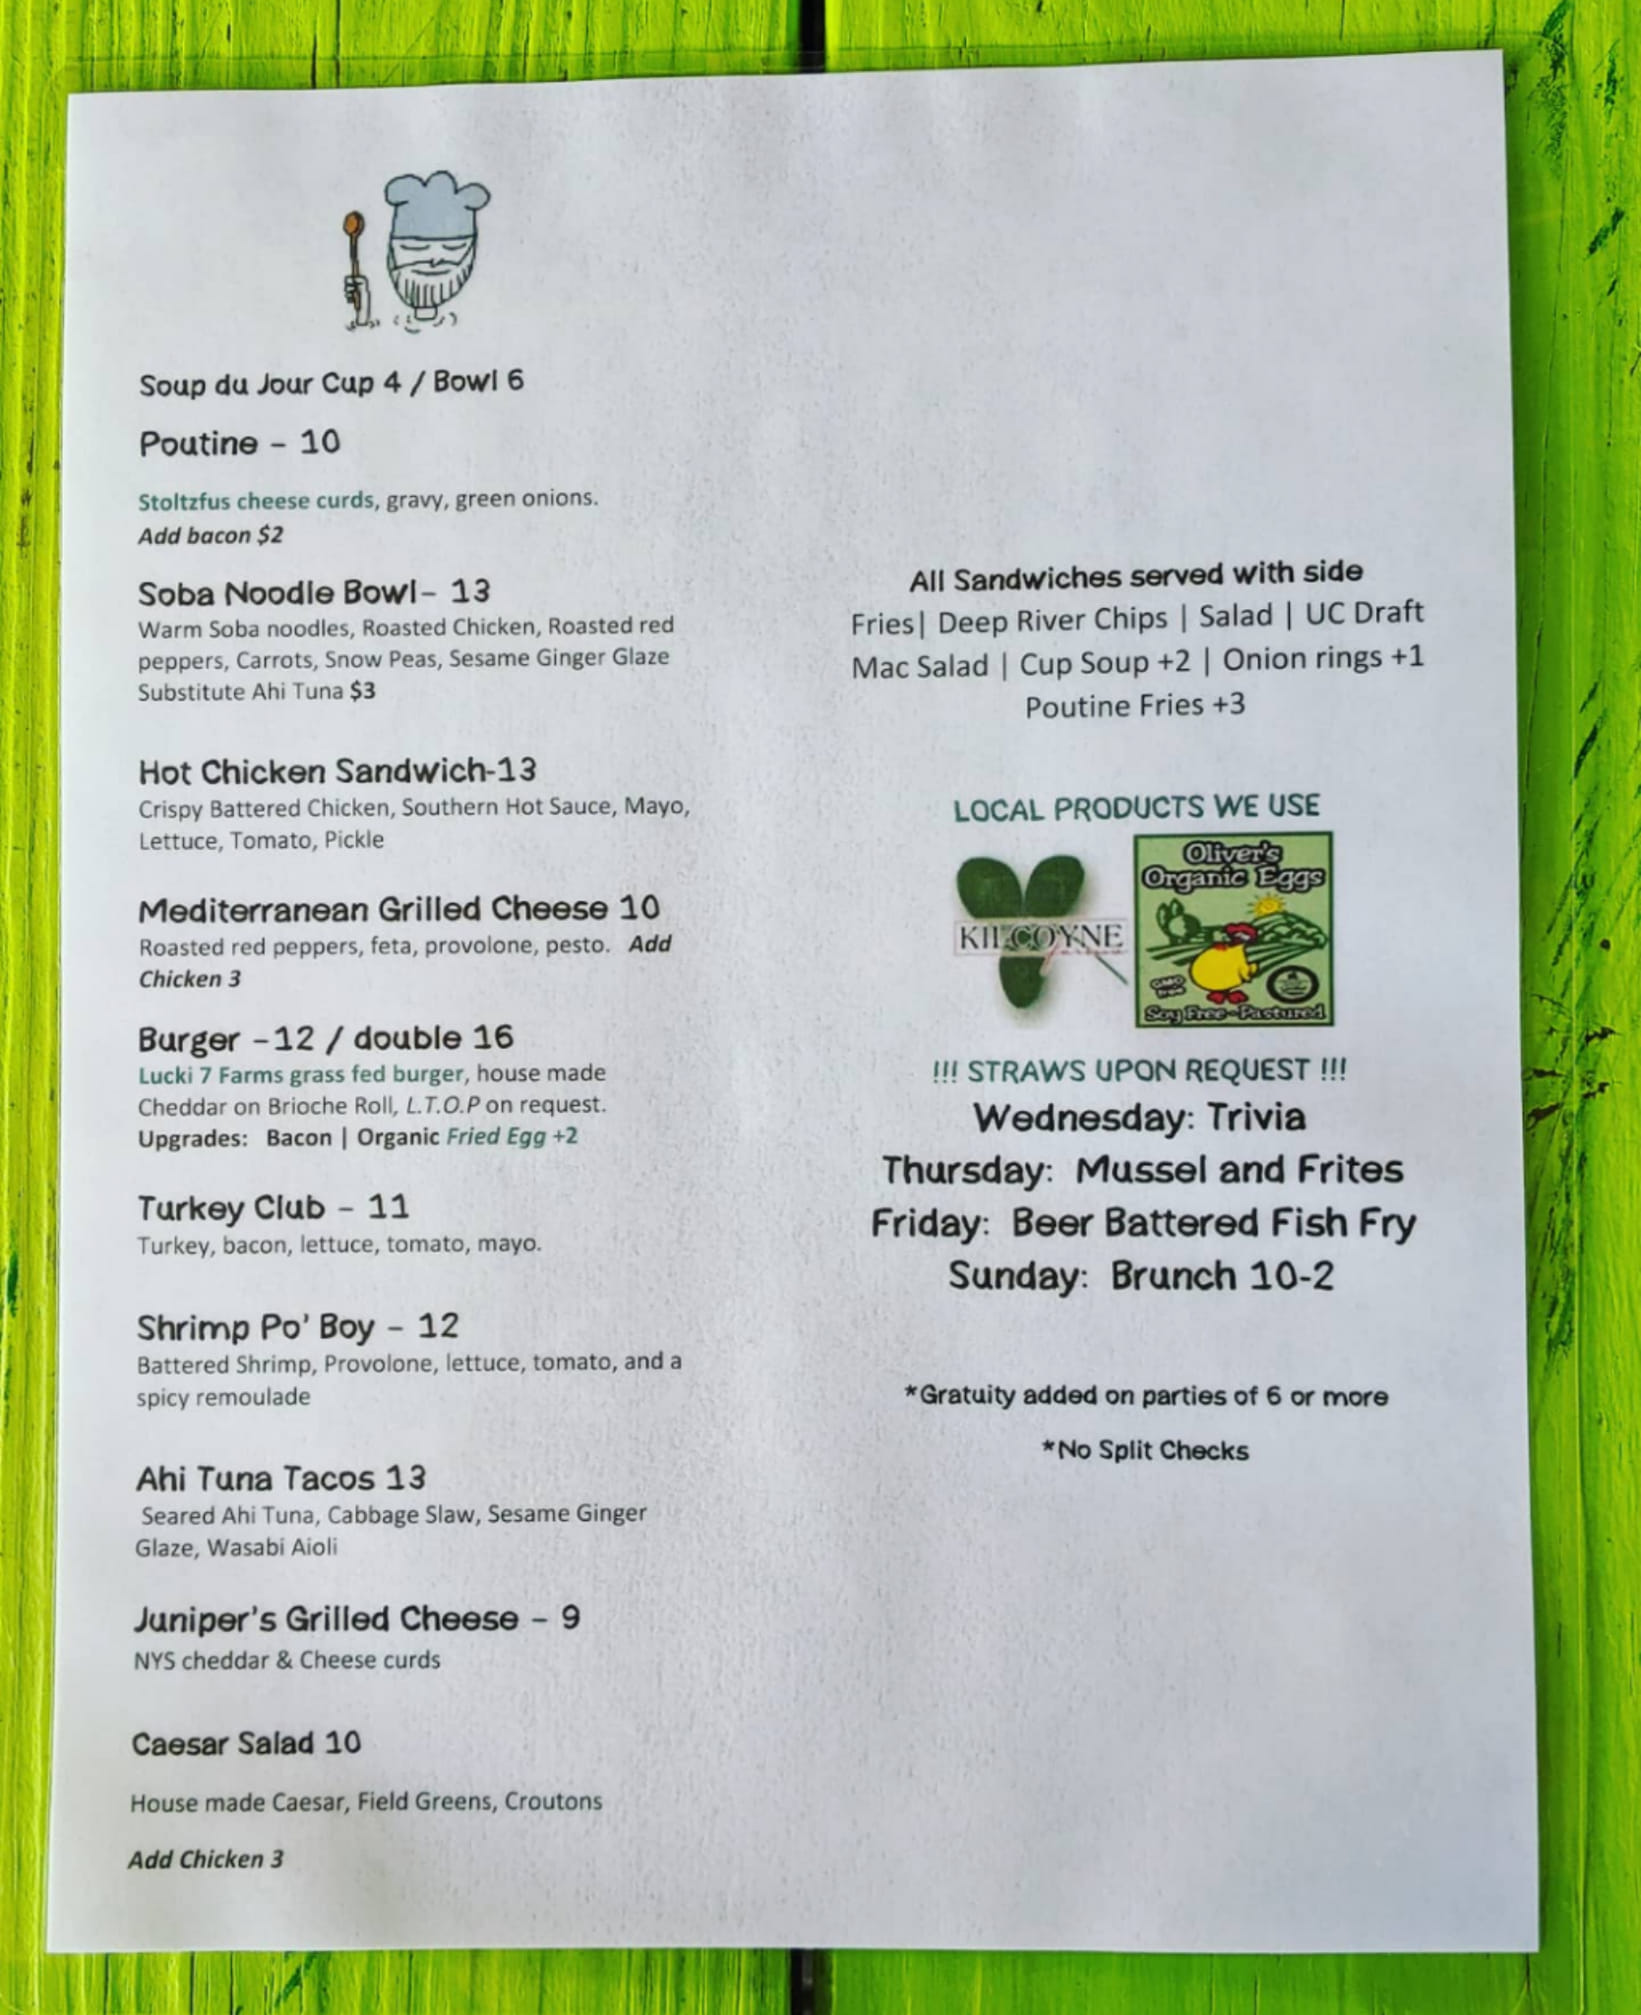 Soup du Jour Cup 4 / Bowl 6
Poutine - 10
Stoltzfus cheese curds, gravy, green onions.
Add bacon $2
Soba Noodle Bowl- 13
Warm Soba noodles, Roasted Chicken, Roasted red
peppers, Carrots, Snow Peas, Sesame Ginger Glaze
Substitute Ahi Tuna $3
Hot Chicken Sandwich-13
Crispy Battered Chicken, Southern Hot Sauce, Mayo,
Lettuce, Tomato, Pickle
Mediterranean Grilled Cheese 10
Roasted red peppers, feta, provolone, pesto. Add
Chicken 3
Burger -12 / double 16
Lucki 7 Farms grass fed burger, house made
Cheddar on Brioche Roll, L.T.O.P on request.
Upgrades: Bacon | Organic Fried Egg +2
Turkey Club - 11
Turkey, bacon, lettuce, tomato, mayo.
Shrimp Po' Boy - 12
Battered Shrimp, Provolone, lettuce, tomato, and a
spicy remoulade
Ahi Tuna Tacos 13
Seared Ahi Tuna, Cabbage Slaw, Sesame Ginger
Glaze, Wasabi Aioli
Juniper's Grilled Cheese - 9
NYS cheddar & Cheese curds
Caesar Salad 10
House made Caesar, Field Greens, Croutons
Add Chicken 3
All Sandwiches served with side
Fries| Deep River Chips | Salad | UC Draft
Mac Salad | Cup Soup +2 | Onion rings +1
Poutine Fries +3
LOCAL PRODUCTS WE USE
KILCOYNE
farms
Oliver's
Organic Eggs
GMO
Free
Soy Free - Pastured
!!! STRAWS UPON REQUEST !!!
Wednesday: Trivia
Thursday: Mussel and Frites
Friday: Beer Battered Fish Fry
Sunday: Brunch 10-2
*Gratuity added on parties of 6 or more
*No Split Checks